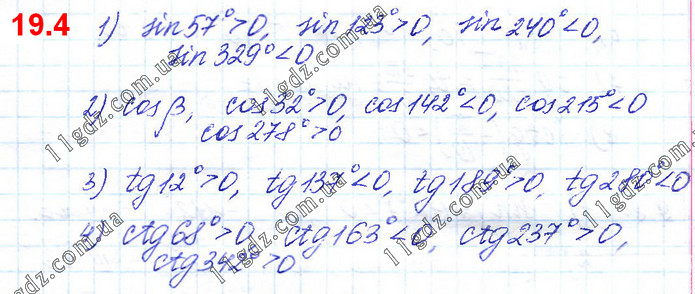 19.4
1) sin 57°>0, sin 123°>0, sin 240°<0,
sin 329°<0
2) cos β, cos 32°>0, cos 142°<0, cos 215°<0
cos 278°>0
3) tg 12°>0, tg 137°<0, tg >0, tg <0
4) ctg 68°>0 ctg 163°<0, ctg 237°>0,
ctg >0
11gdz.com.ua
11gdz.com.ua
11gdz.com.ua
11gdz.com.ua
11gdz.com.ua
11gdz.com.ua